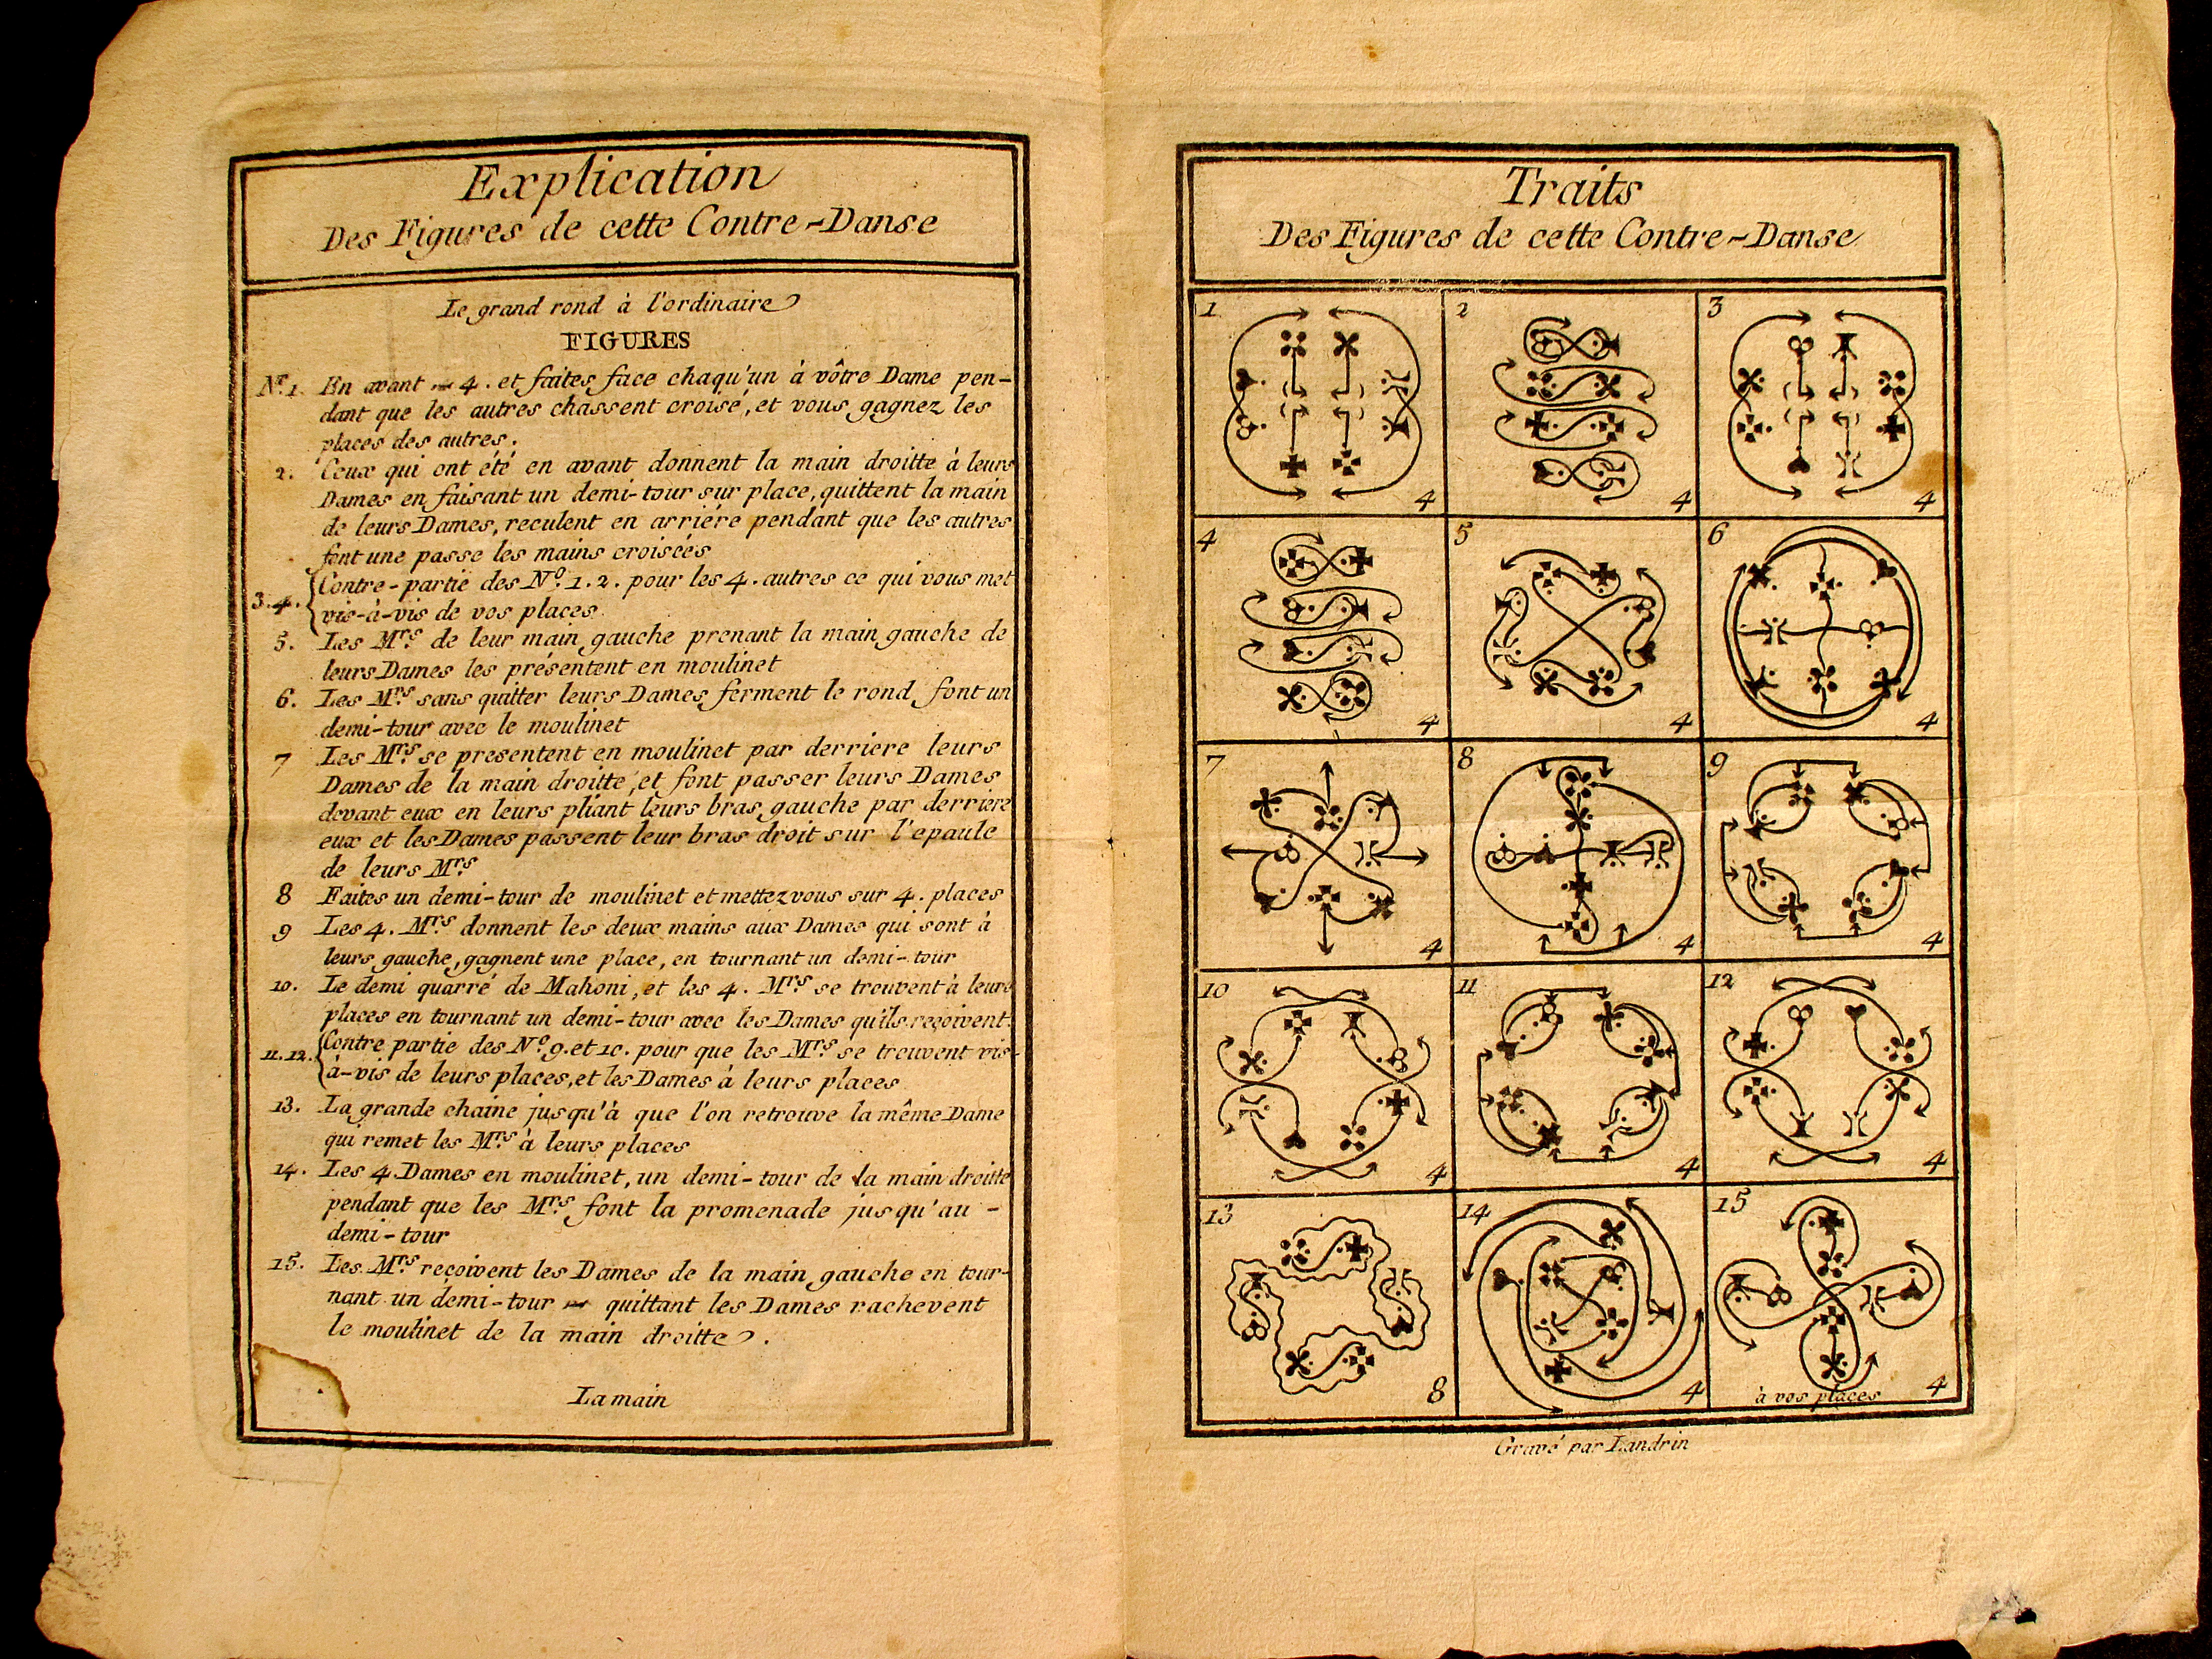 Explication
Des Figures de cette Contre-Danse
Le grand rond à l'ordinaire
FIGURES
No. 1. En avant 4. et faites face chaqu'un à vôtre Dame pen-
dant que les autres chassent croisé, et vous gagnez les
places des autres.
2. Ceux qui ont été en avant donnent la main droitte à leurs
Dames en faisant un demi-tour sur place, quittent la main
de leurs Dames, reculent en arriére pendant que les autres
font une passe les mains croisées
3.4. Contre-partie des No. 1. 2. pour les 4. autres ce qui vous met
vis-à-vis de vos places
5. Les Mrs. de leur main gauche prenant la main gauche de
leurs Dames les présentent en moulinet
6. Les Mrs. sans quitter leurs Dames ferment le rond font un
demi-tour avec le moulinet
7 Les Mrs. se presentent en moulinet par derriere leurs
Dames de la main droitte, et font passer leurs Dames
devant eux en leurs pliant leurs bras gauche par derriere
eux et les Dames passent leur bras droit sur l'epaule
de leurs Mrs.
8 Faites un demi-tour de moulinet et mettez vous sur 4. places
9 Les 4. Mrs. donnent les deux mains aux Dames qui sont à
leurs gauche, gagnent une place, en tournant un demi-tour
10. Le demi quarré de Mahoni, et les 4. Mrs. se trouvent à leurs
places en tournant un demi-tour avec les Dames qu'ils reçoivent.
11.12. Contre partie des No. 9. et 10. pour que les Mrs. se trouvent vis-
à-vis de leurs places, et les Dames à leurs places
13. La grande chaine jusqu'à que l'on retrouve la même Dame
qui remet les Mrs. à leurs places
14. Les 4 Dames en moulinet, un demi-tour de la main droitte
pendant que les Mrs. font la promenade jusqu'au -
demi-tour
15. Les Mrs. reçoivent les Dames de la main gauche en tour-
nant un demi-tour quittant les Dames rachevent
le moulinet de la main droitte.
La main
Traits
Des Figures de cette Contre-Danse
1 2 3
4 4 4
4 5 6
4 4 4
7 8 9
4 4 4
10 11 12
4 4 4
13 14 15
8 4 à vos places 4
Gravé par Landrin